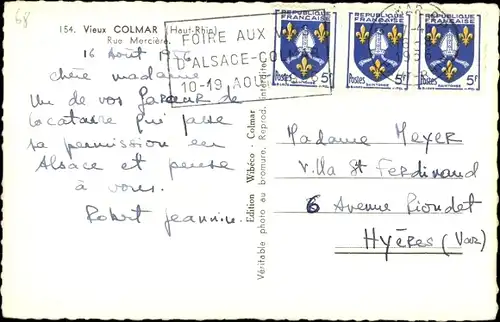 68
154. Vieux COLMAR (Haut-Rhin)
Rue Mercière.
FOIRE AUX V
D'ALSACE-COLMAR
10-19 AOU
REPUBLIQUE FRANÇAISE
Postes 5f
SAINTONGE
REPUBLIQUE FRANÇAISE
Postes 5f
SAINTONGE
REPUBLIQUE FRANÇAISE
Postes 5f
SAINTONGE
16 Août
chère madame
Un de vos
locataire qui passe
sa permission en
Alsace et pense
à vous.
Robert Jeannine.
Edition Wibéco - Colmar
Véritable photo au bromure. Reprod. interdite.
Madame MEYER
Villa St FERDINAND
6 Avenue Riondet
HYÈRES (Var)